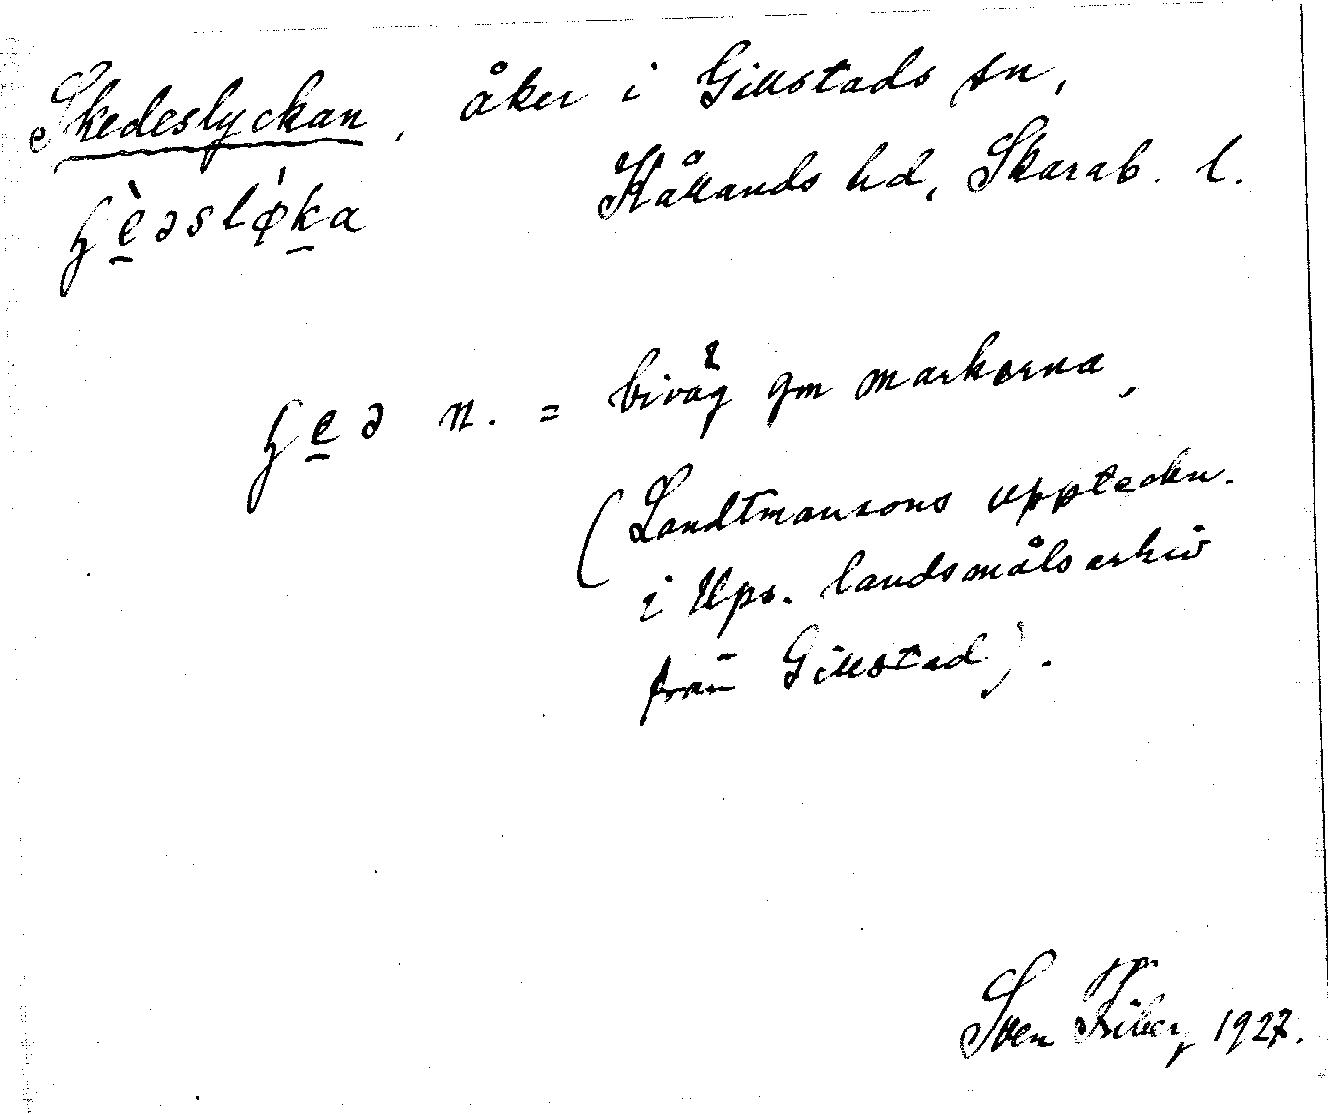 Skedeslyckan, åker i Gillstads sn,
Kållands hd, Skarab. l.
n. = biväg gm markerna,
(Landtmansons uppteckn.
i Ups. landsmålsarkiv
från Gillstad).
Sven 1927.